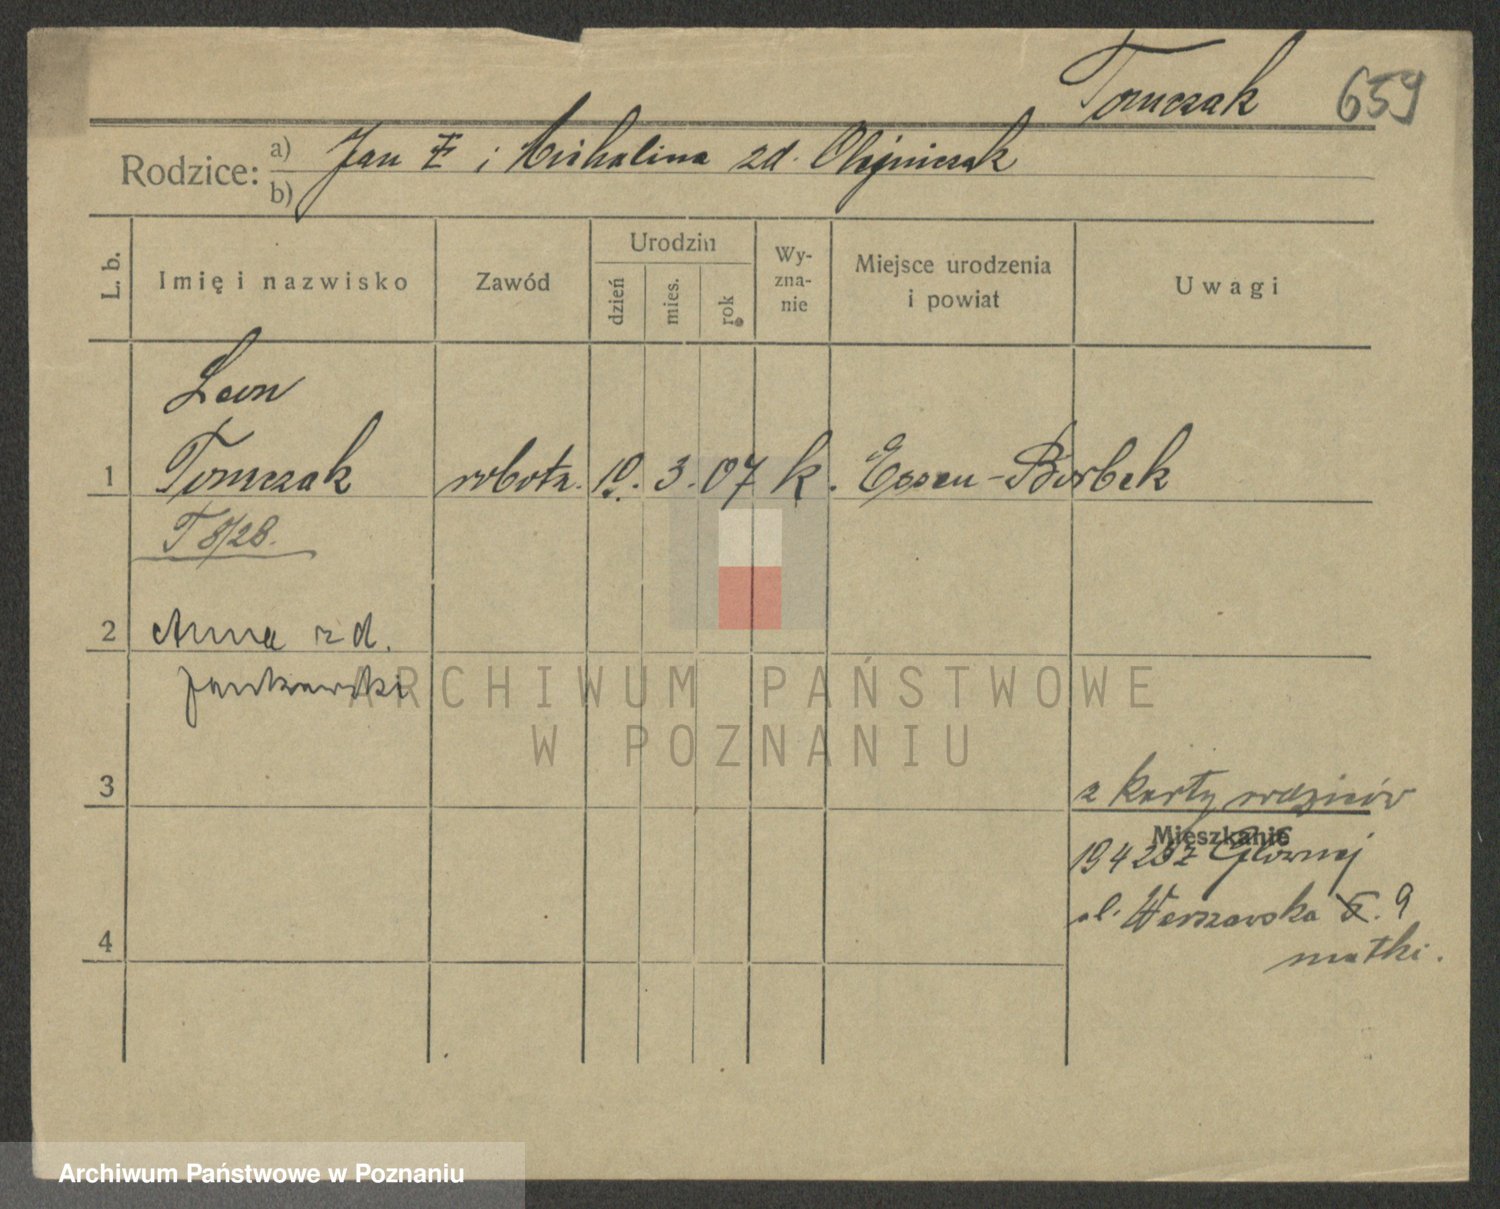 Tomczak 659
Rodzice: a) Jan i Michalina zd. Olejniczak
b)
L. b.
Imię i nazwisko
Zawód
Urodzin
dzień
mies.
rok
Wy-
zna-
nie
Miejsce urodzenia
i powiat
Uwagi
Leon
1 Tomczak robotn. 10. 3. 07 k. Essen-Borbek
T 8/28.
2 Anna zd.
Jankowski
ARCHIWUM PAŃSTWOWE
W POZNANIU
3 z karty rodziców
Mieszkanie
Głównej
ul. Warszawska 9
matki.
4
Archiwum Państwowe w Poznaniu